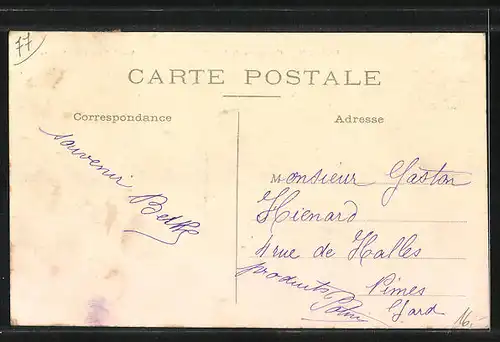 77
CARTE POSTALE
Correspondance
Adresse
souvenir
Monsieur Gaston
Hienard
4 rue de Halles
produits
Nimes
Gard
16.-